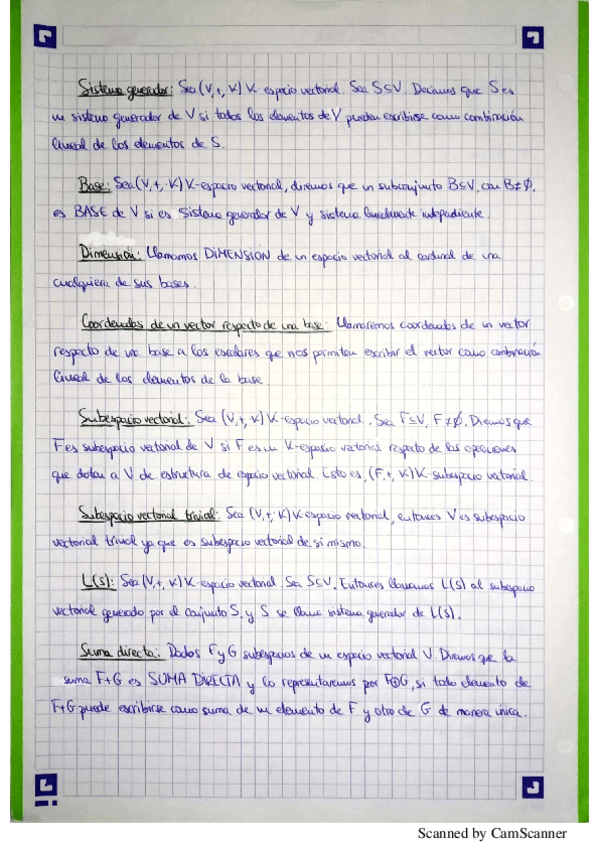 Sistema generador: Sea (V,+,·K) K-espacio vectorial. Sea S⊆V. Decimos que S es
un sistema generador de V si todos los elementos de V pueden escribirse como combinación
lineal de los elementos de S.
Base: Sea (V,+,·K) K-espacio vectorial, diremos que un subconjunto B⊆V, con B≠∅,
es BASE de V si es sistema generador de V y sistema linealmente independiente.
Dimensión: Llamamos DIMENSIÓN de un espacio vectorial al cardinal de una
cualquiera de sus bases.
Coordenadas de un vector respecto de una base: Llamaremos coordenadas de un vector
respecto de una base a los escalares que nos permiten escribir el vector como combinación
lineal de los elementos de la base.
Subespacio vectorial: Sea (V,+,·K) K-espacio vectorial. Sea F⊆V, F≠∅. Diremos que
F es subespacio vectorial de V si F es un K-espacio vectorial respecto de las operaciones
que dotan a V de estructura de espacio vectorial. Esto es, (F,+,·K) K-subespacio vectorial.
Subespacio vectorial trivial: Sea (V,+,·K) K espacio vectorial, entonces V es subespacio
vectorial trivial ya que es subespacio vectorial de sí mismo.
L(S): Sea (V,+,·K) K-espacio vectorial. Sea S⊆V. Entonces llamamos L(S) al subespacio
vectorial generado por el conjunto S, y S se llama sistema generador de L(S).
Suma directa: Dados F y G subespacios de un espacio vectorial V. Diremos que la
suma F+G es SUMA DIRECTA y lo representaremos por F⊕G, si todo elemento de
F+G puede escribirse como suma de un elemento de F y otro de G de manera única.
Scanned by CamScanner